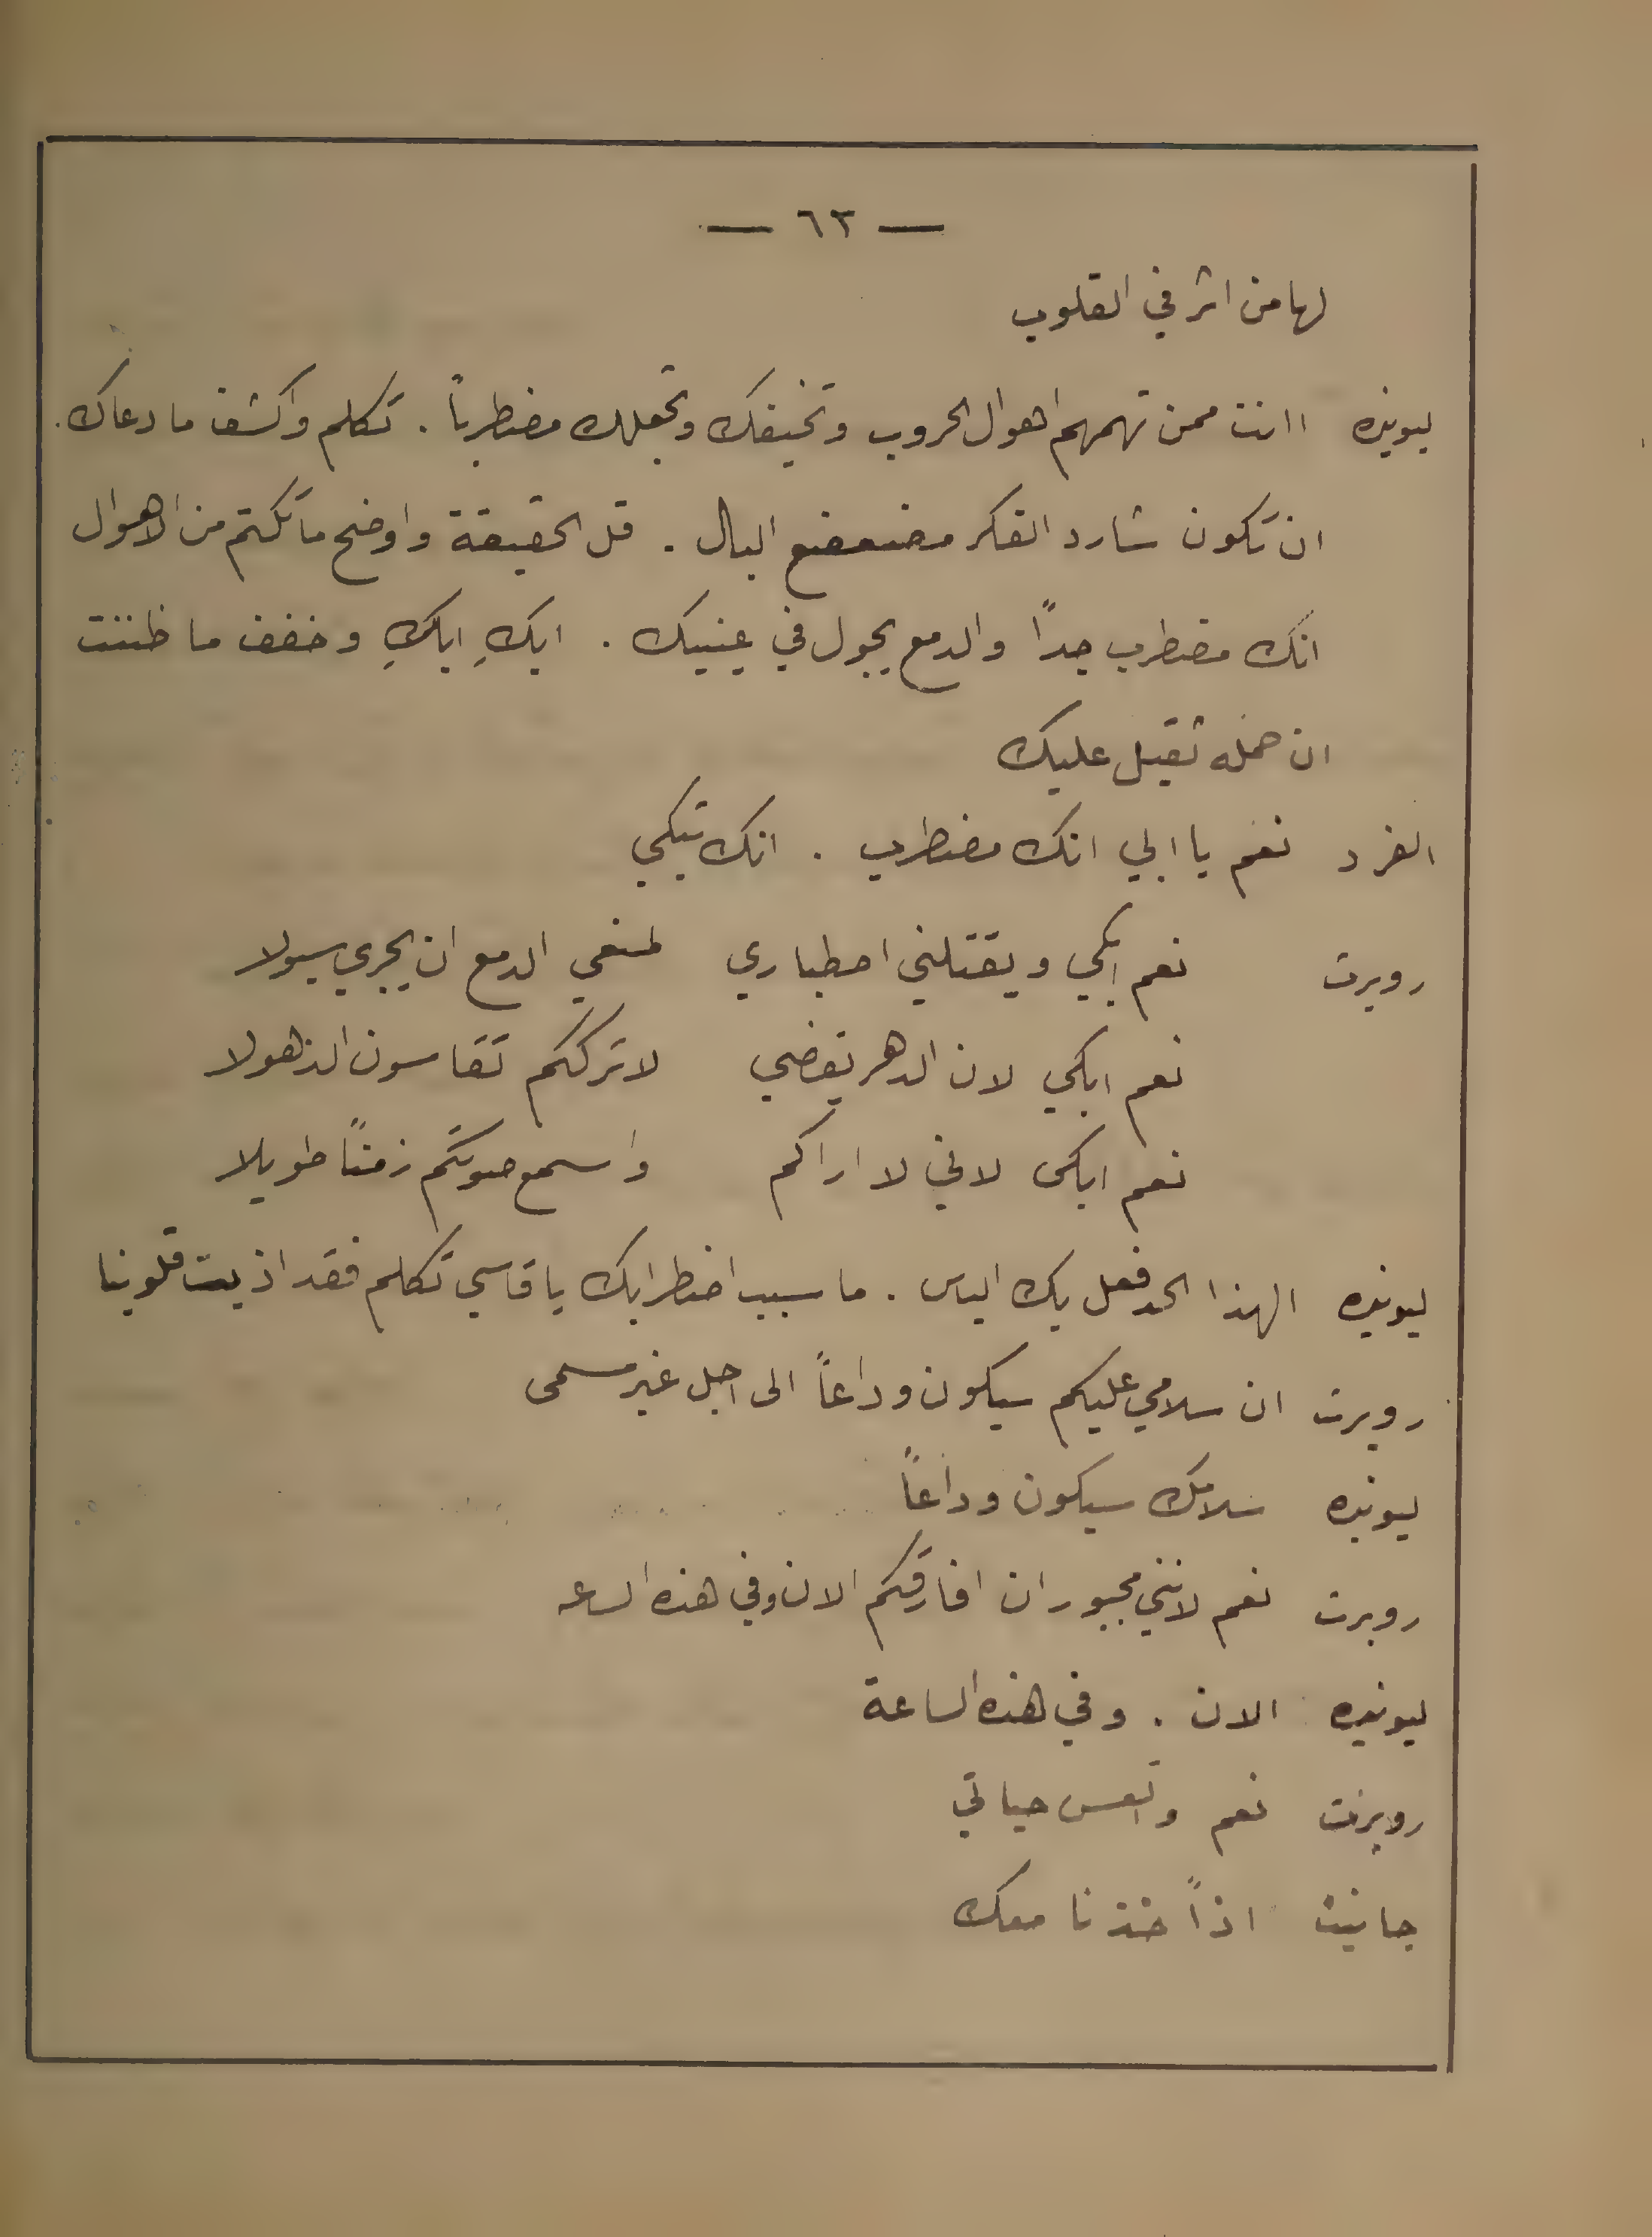 — ٦٢ —
لها من اثر في القلوب
ليونيده اانت ممن تهمهم اهوال الحروب وتخيفك وتجعلك مضطرباً . تكلم واكشف ما دعاك .
ان تكون شارد الفكر مضعضع البال . قل الحقيقة واوضح ما تكتم من الاهوال
انك مضطرب جداً والدمع يجول في عينيك . ابكِ ابكِ وخفف ما ظننت
ان حمله ثقيل عليك
الفرد نعم يا ابي انك مضطرب . انك تبكي
روبرت نعم ابكي ويقتلني اصطباري لمنعي الدمع ان يجري سيولا
نعم ابكي لان الدهر يقضي لاترككم تقاسون الذهولا
نعم ابكى لاني لا اراكم واسمع صوتكم زمنًا طويلا
ليونيده الهذا الحد فعل بك الياس . ما سبب اضطرابك يا قاسي تكلم فقد اذيبت قلوبنا
روبرت ان سلامي عليكم سيكون وداعاً الى اجل غير مسمى
ليونيده سلامك سيكون وداعاً
روبرت نعم لانني مجبور ان افارقكم الان وفي هذه الساعه
ليونيده الان . وفي هذه الساعة
روبرت نعم واتعس حياتي
جانيت اذاً خذنا معك